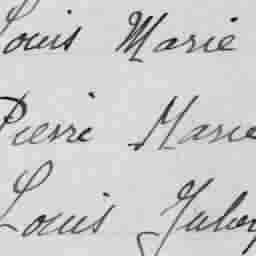 Louis Marie
Pierre Marie
Louis